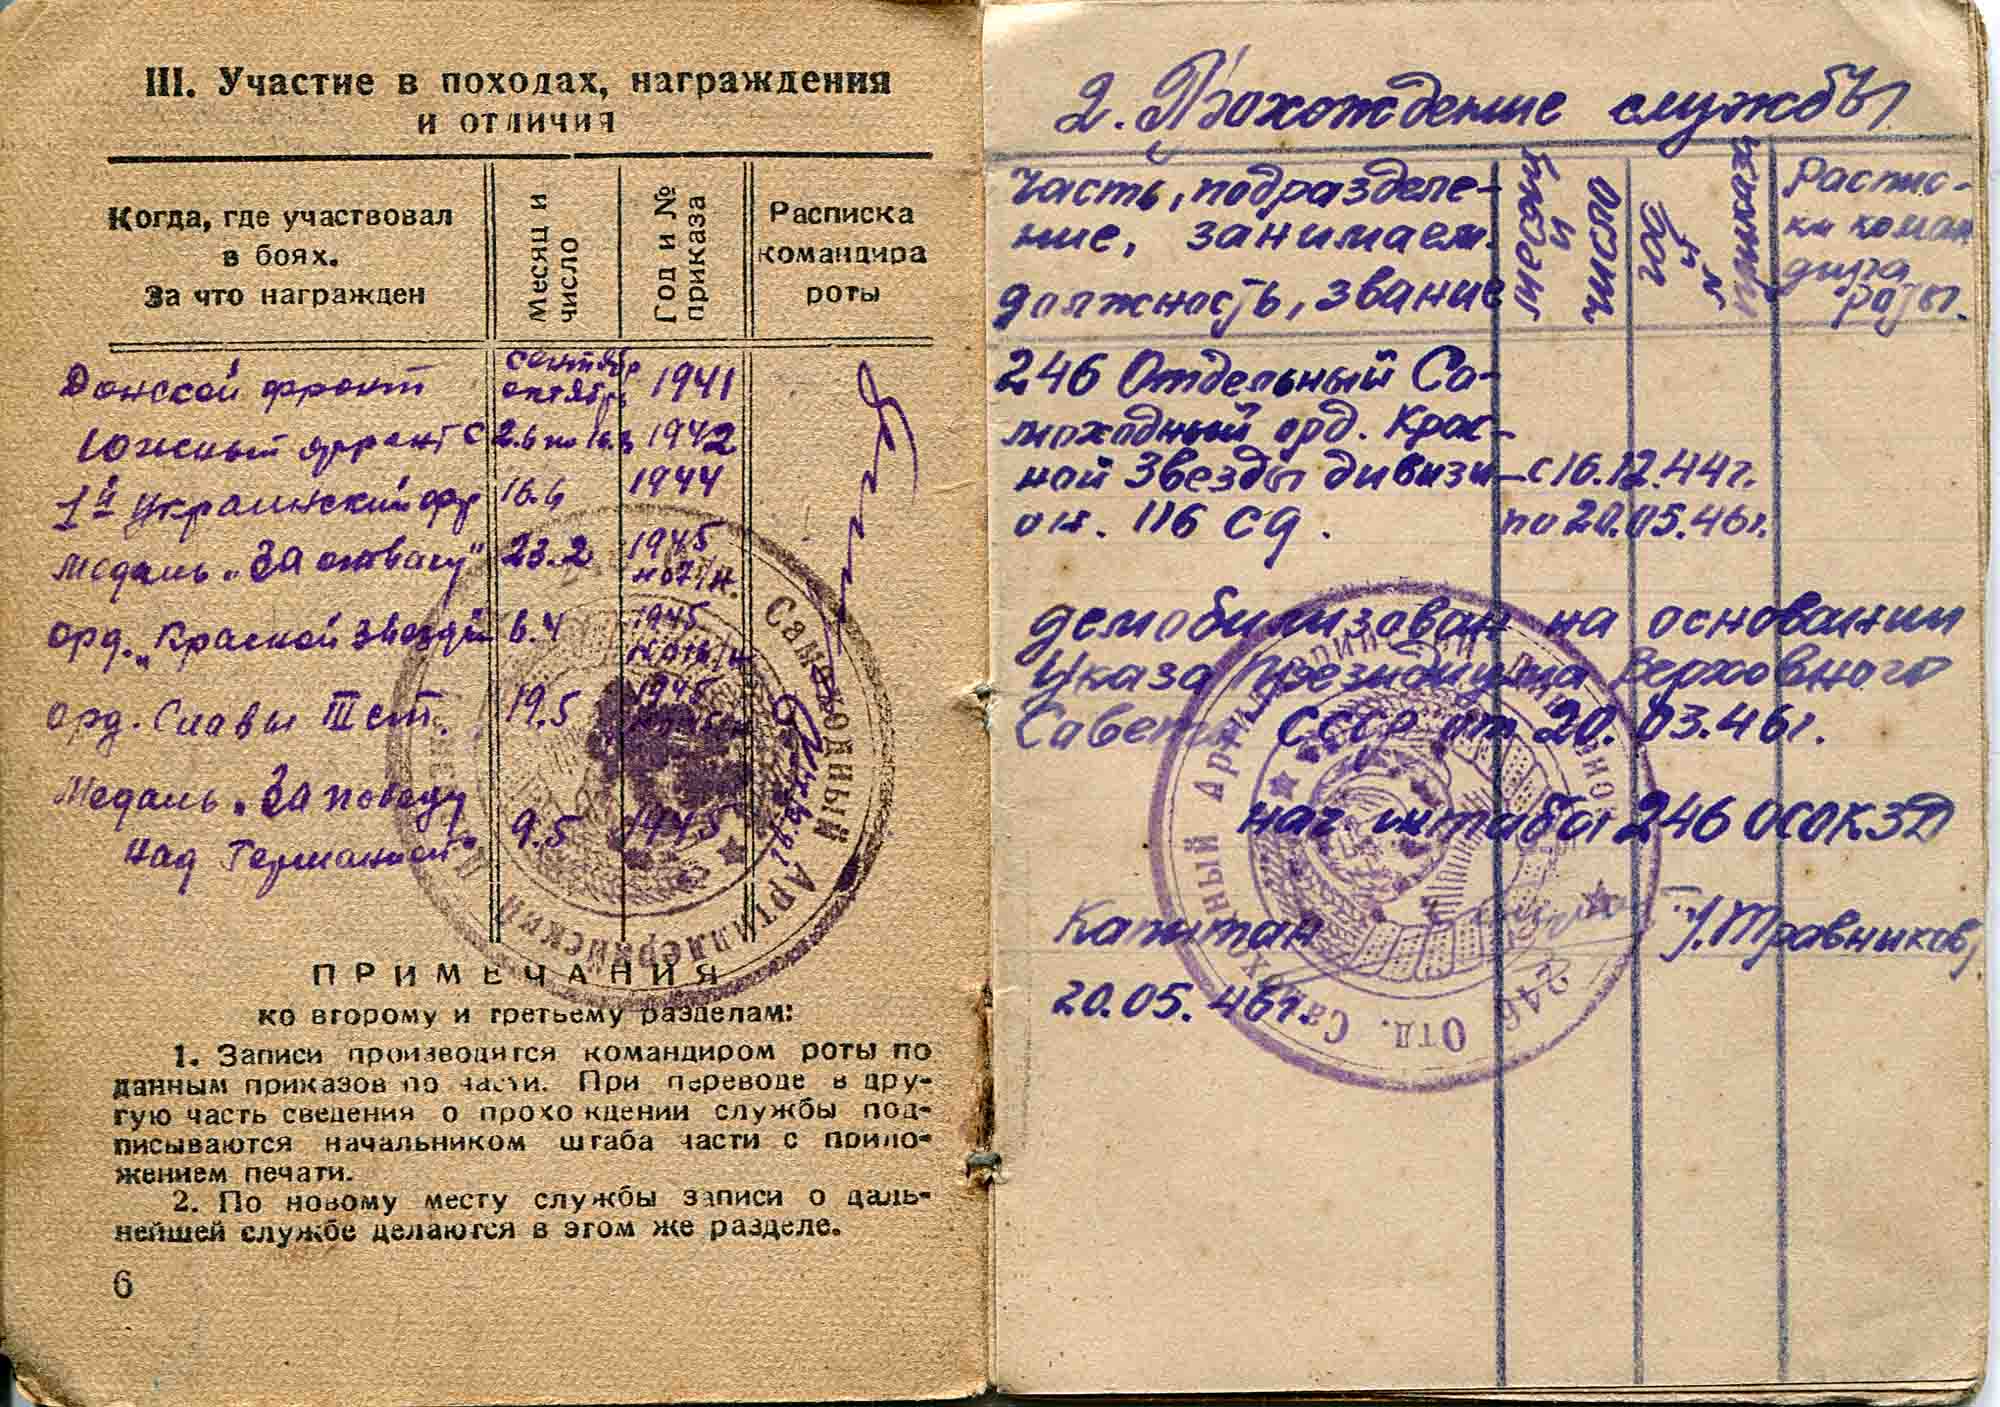 III. Участие в походах, награждения
и отличия
Когда, где участвовал
в боях.
За что награжден
Месяц и
число
Год и №
приказа
Расписка
командира
роты
Донской фронт сентябрь октябрь 1941
Южный фронт с 2.6 по 1942
1й Украинский фр 16.6 1944
медаль „За отвагу" 23.2 1945
орд. „Красной Звезды 6.4 1945
орд. Славы III ст. 19.5 1945
Медаль „За победу
над Германией" 9.5 1945
Самоходный Артиллерийский
ПРИМЕЧАНИЯ
ко второму и третьему разделам:
1. Записи производятся командиром роты по
данным приказов по части. При переводе в дру-
гую часть сведения о прохождении службы под-
писываются начальником штаба части с прило-
жением печати.
2. По новому месту службы записи о даль-
нейшей службе делаются в этом же разделе.
6
2. Прохождение службы
Часть, подразделе-
ние, занимаем.
должность, звание
месяц
и
число
год
и
№
приказа
Распис-
ки коман
дира
роты.
246 Отдельный Са-
моходный орд. Крас-
ной Звезды дивизи- с 16.12.44г.
он. 116 сд. по 20.05.46г.
демобилизован на основании
Указа Президиума Верховного
Совета СССР от 20.03.46г.
нач штаба 246 ОСОКЗД
Капитан Травников
20.05.46г.
246 Отд. Самоходный Артиллерийский Дивизион